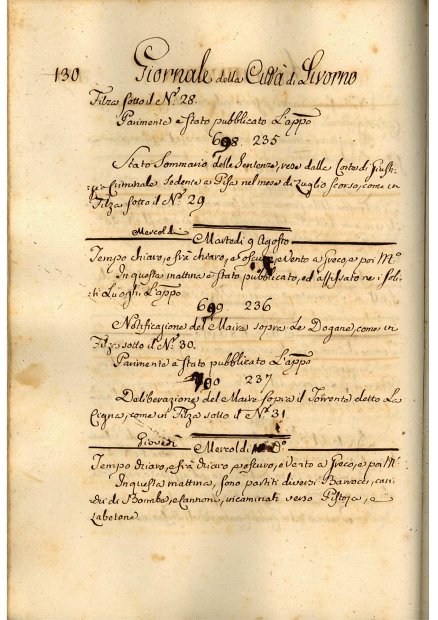 130 Giornale della Città di Livorno
Filza sotto il N.º 28.
Parimente è stato pubblicato L'appo
698. 235
Stato Sommario delle Sentenze, rese dalla Corte di Giusti
zia Criminale sedente a Pisa nel mese di Luglio scorso, come in
Filza sotto il N.º 29
Mercoldi
Martedi 9 Agosto
Tempo chiaro, e frà chiaro, e oscuro, e Vento a Greco, e poi M.º
In questa mattina è stato pubblicato, ed affissato ne i soli
ti Luoghi L'appo
699 236
Notificazione del Maire sopra Le Dogane, come in
Filza sotto il N.º 30.
Parimente è stato pubblicato L'appo
700 237
Deliberazione del Maire sopra il Torrente detto La
Cigna, come in Filza sotto il N.º 31.
Giovedi
Mercoldi 10 Dº
Tempo chiaro, e frà chiaro, e oscuro, e Vento a Greco, e poi M.º
In questa mattina, sono partiti diversi Barrocci, cari
chi di Bombe, e Cannoni, incaminati verso Pistoja, e